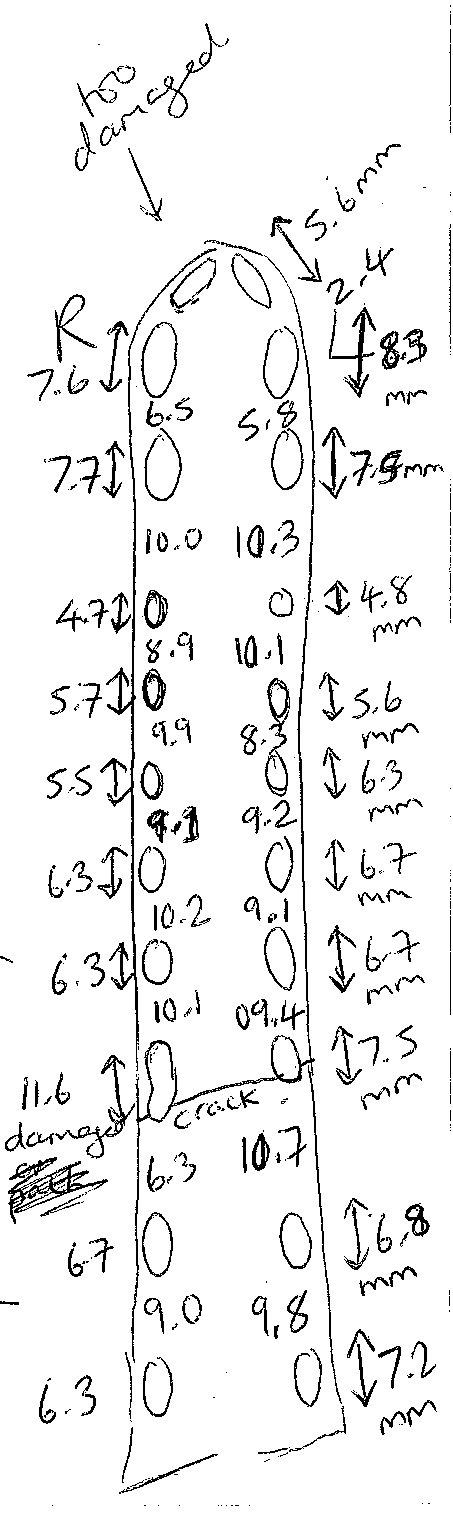 too
damaged
5.6mm
2.4
R
7.6
8.5
mm
6.5 5.8
7.7
mm
10.0 10.3
4.7 4.8
mm
8.9 10.1
5.7 5.6
mm
9.9 8.3
5.5 6.3
mm
9.1 9.2
6.3 6.7
mm
10.2 9.1
6.3 6.7
mm
10.1 09.4
7.5
mm
11.6
damaged
crack.
6.3 10.7
6.7 6.8
mm
9.0 9.8
6.3 7.2
mm